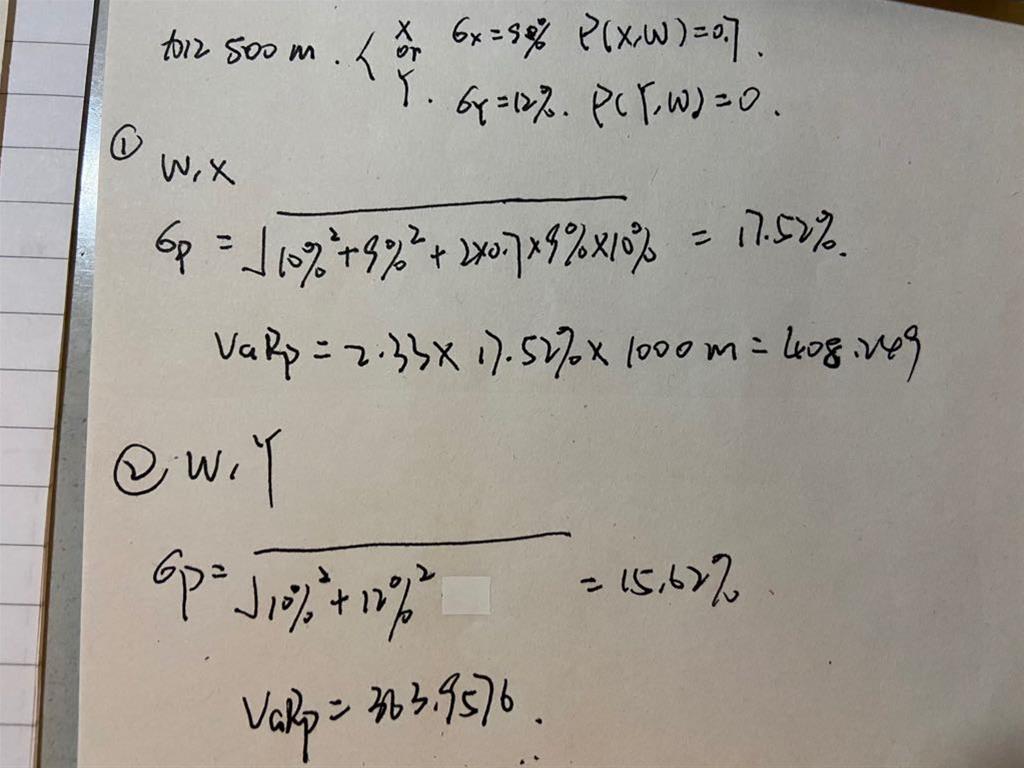 500 m. { X or Y.
σx = 9% ρ(X,W) = 0.7.
σY = 12%. ρ(Y,W) = 0.
① W, X
σp = √10%²+9%²+2×0.7×9%×10% = 17.52%.
VaRp = 2.33 × 17.52% × 1000 m = 408.249
② W, Y
σp = √10%²+12%² = 15.62%
VaRp = 363.9576.